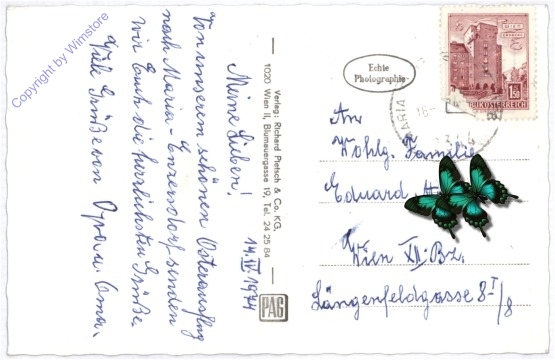 Copyright by Wimstore
Meine Lieben! 14.IV 1974
Von unserem schönen Osterausflug
nach Maria-Enzersdorf senden
wir Euch die herzlichsten Grüße.
Viele Grüße von Opa u. Oma.
Verlag: Richard Pietsch & Co. KG,
1020 Wien II, Blumauergasse 19, Tel. 24 25 84
PAG
Echte
Photographie
1.50
REPUBLIK ÖSTERREICH
MARIA
An
Wohlg. Familie
Eduard
Wien XII. Bz.
Längenfeldgasse 8 I/8